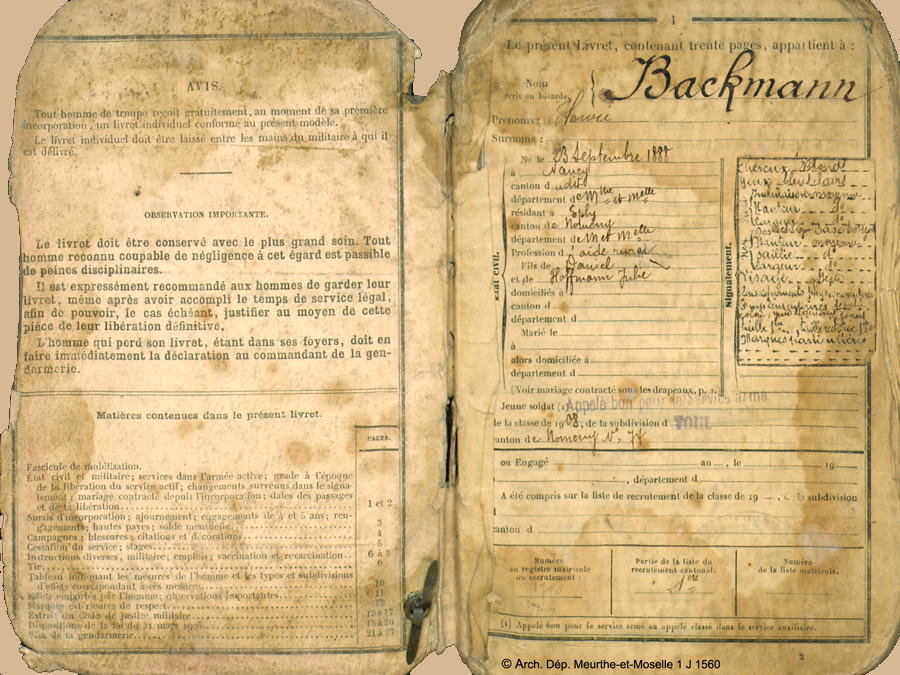 AVIS.
Tout homme de troupe reçoit gratuitement, au moment de sa première
incorporation, un livret individuel conforme au présent modèle.
Le livret individuel doit être laissé entre les mains du militaire à qui il
est délivré.
OBSERVATION IMPORTANTE.
Le livret doit être conservé avec le plus grand soin. Tout
homme reconnu coupable de négligence à cet égard est passible
de peines disciplinaires.
Il est expressément recommandé aux hommes de garder leur
livret, même après avoir accompli le temps de service légal,
afin de pouvoir, le cas échéant, justifier au moyen de cette
pièce de leur libération définitive.
L'homme qui perd son livret, étant dans ses foyers, doit en
faire immédiatement la déclaration au commandant de la gen-
darmerie.
Matières contenues dans le présent livret.
PAGES.
Fascicule de mobilisation.
État civil et militaire; services dans l'armée active; grade à l'époque
de la libération du service actif; changements survenus dans le signa-
lement; mariage contracté depuis l'incorporation; dates des passages
et de la libération 1 et 2
Sursis d'incorporation; ajournement; engagements de 4 et 5 ans; ren-
gagements; hautes payes; solde mensuelle 3
Campagnes; blessures; citations et décorations 4
Cessation du service; stages 5
Instructions diverses, militaire; emplois; vaccination et revaccination 6 à 8
Tir 9
Tableau indiquant les mesures de l'homme et les types et subdivisions
d'effets correspondant à ces mesures 10
Effets emportés par l'homme; observations importantes 11
Marques extérieures de respect
Extrait du Code de justice militaire 13 à 17
Dispositions de la loi du 21 mars 1905 18 à 20
de la gendarmerie 21 à 27
1
Le présent Livret, contenant trente pages, appartient à :
Nom
écrit en bâtarde
Backmann
Prénoms :
Surnoms :
ÉTAT CIVIL.
Né le 23 Septembre 1888
à Nancy
canton d udit
département de Mthe et Melle
résidant à Eply
canton de Nomeny
département de M et Melle
Profession d aide rural
Fils de Daniel
et de Hoffmann Julie
domiciliés à
canton d
département d
Marié le
à
alors domiciliée à
département d
(Voir mariage contracté sous les drapeaux, p. 2.)
Signalement.
Cheveux Blond
Yeux bleu clair
Inclinaison moyenne
Hauteur do
Largeur do
Hauteur moyenne
Saillie do
Largeur do
Visage
Renseignements physionomiques
complémentaires
Marques particulières
Jeune soldat (1) Appelé bon pour le service armé
de la classe de 1908, de la subdivision d TOUL
canton de Nomeny No 74
ou Engagé an , le 19
, département d
A été compris sur la liste de recrutement de la classe de 19 , de la subdivision
canton d
Numéro
au registre matricule
du recrutement :
Partie de la liste du
recrutement cantonal.
1ère
Numéro
de la liste matricule.
(1) Appelé bon pour le service armé ou appelé classé dans le service auxiliaire.
2
© Arch. Dép. Meurthe-et-Moselle 1 J 1560